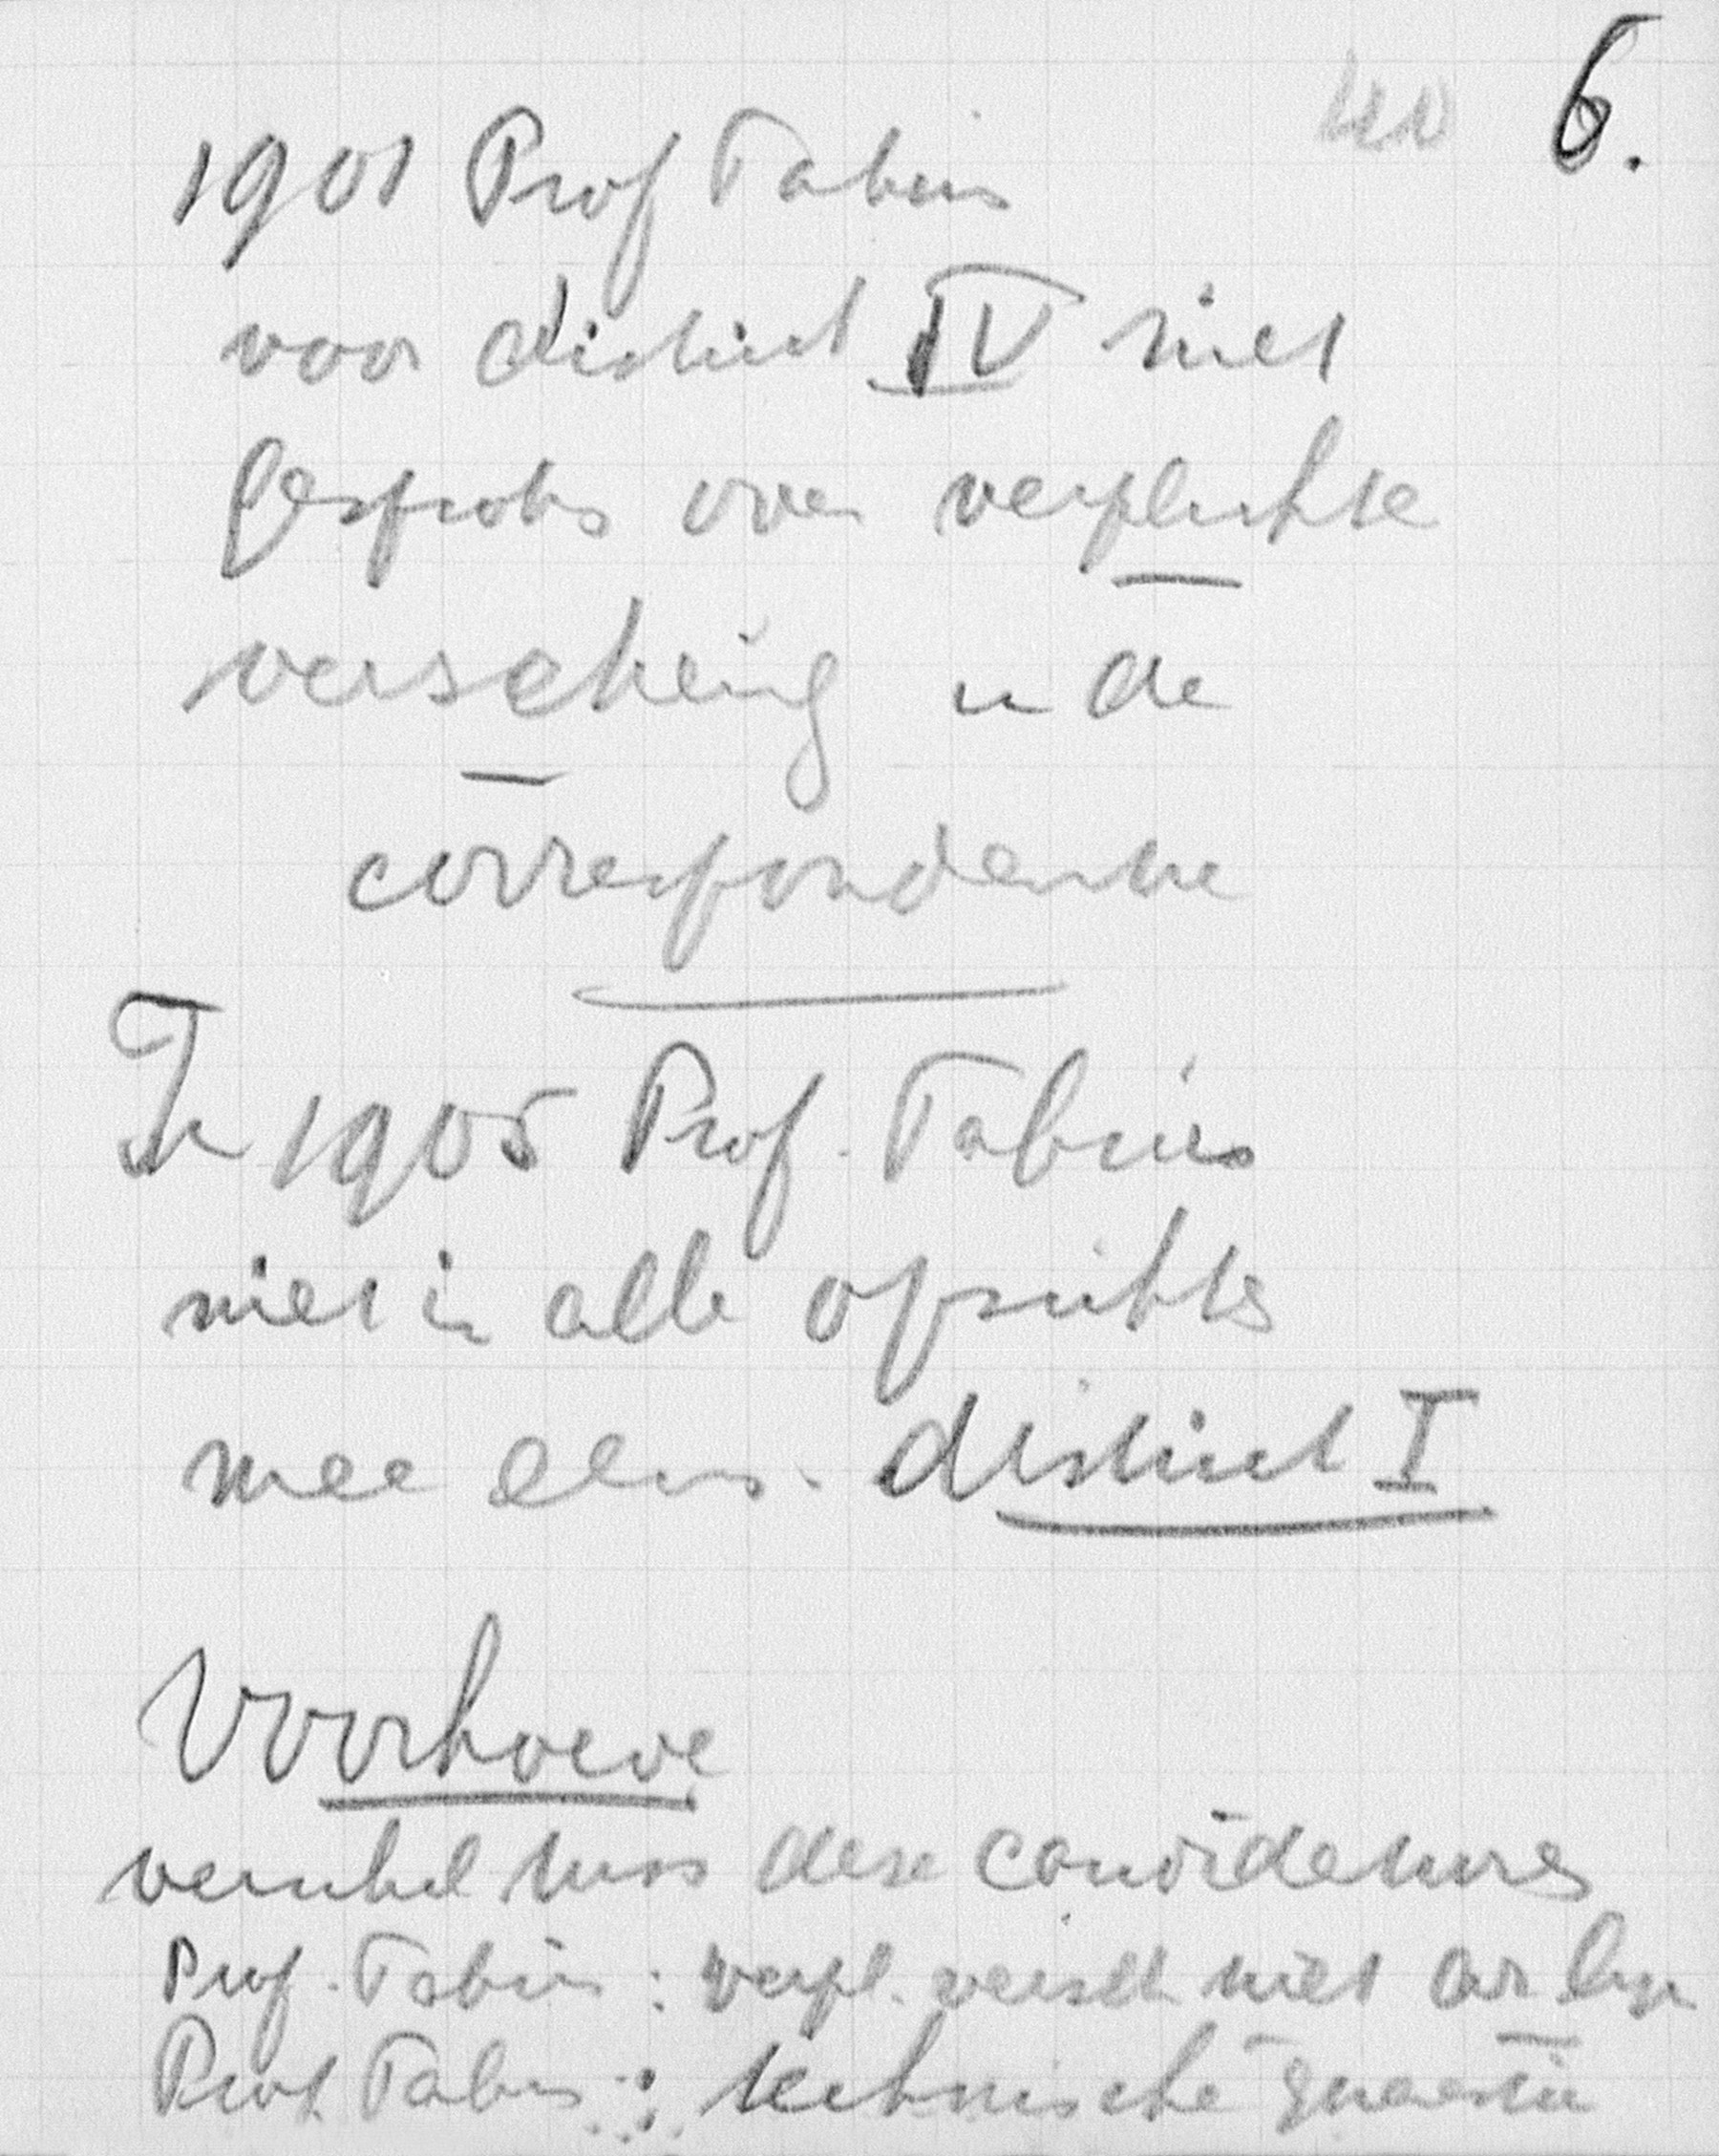 40 6.
1901 Prof Fabius
voor district IV niet
gesproken over verplichte
verzekering in de
correspondentie
In 1905 Prof. Fabius
niet in alle opzichten
mee eens. district I
Voorhoeve
verschil tuss deze candidatures
Prof. Fabius: verpl. verzek niet
Prof Fabius: technische quaestie